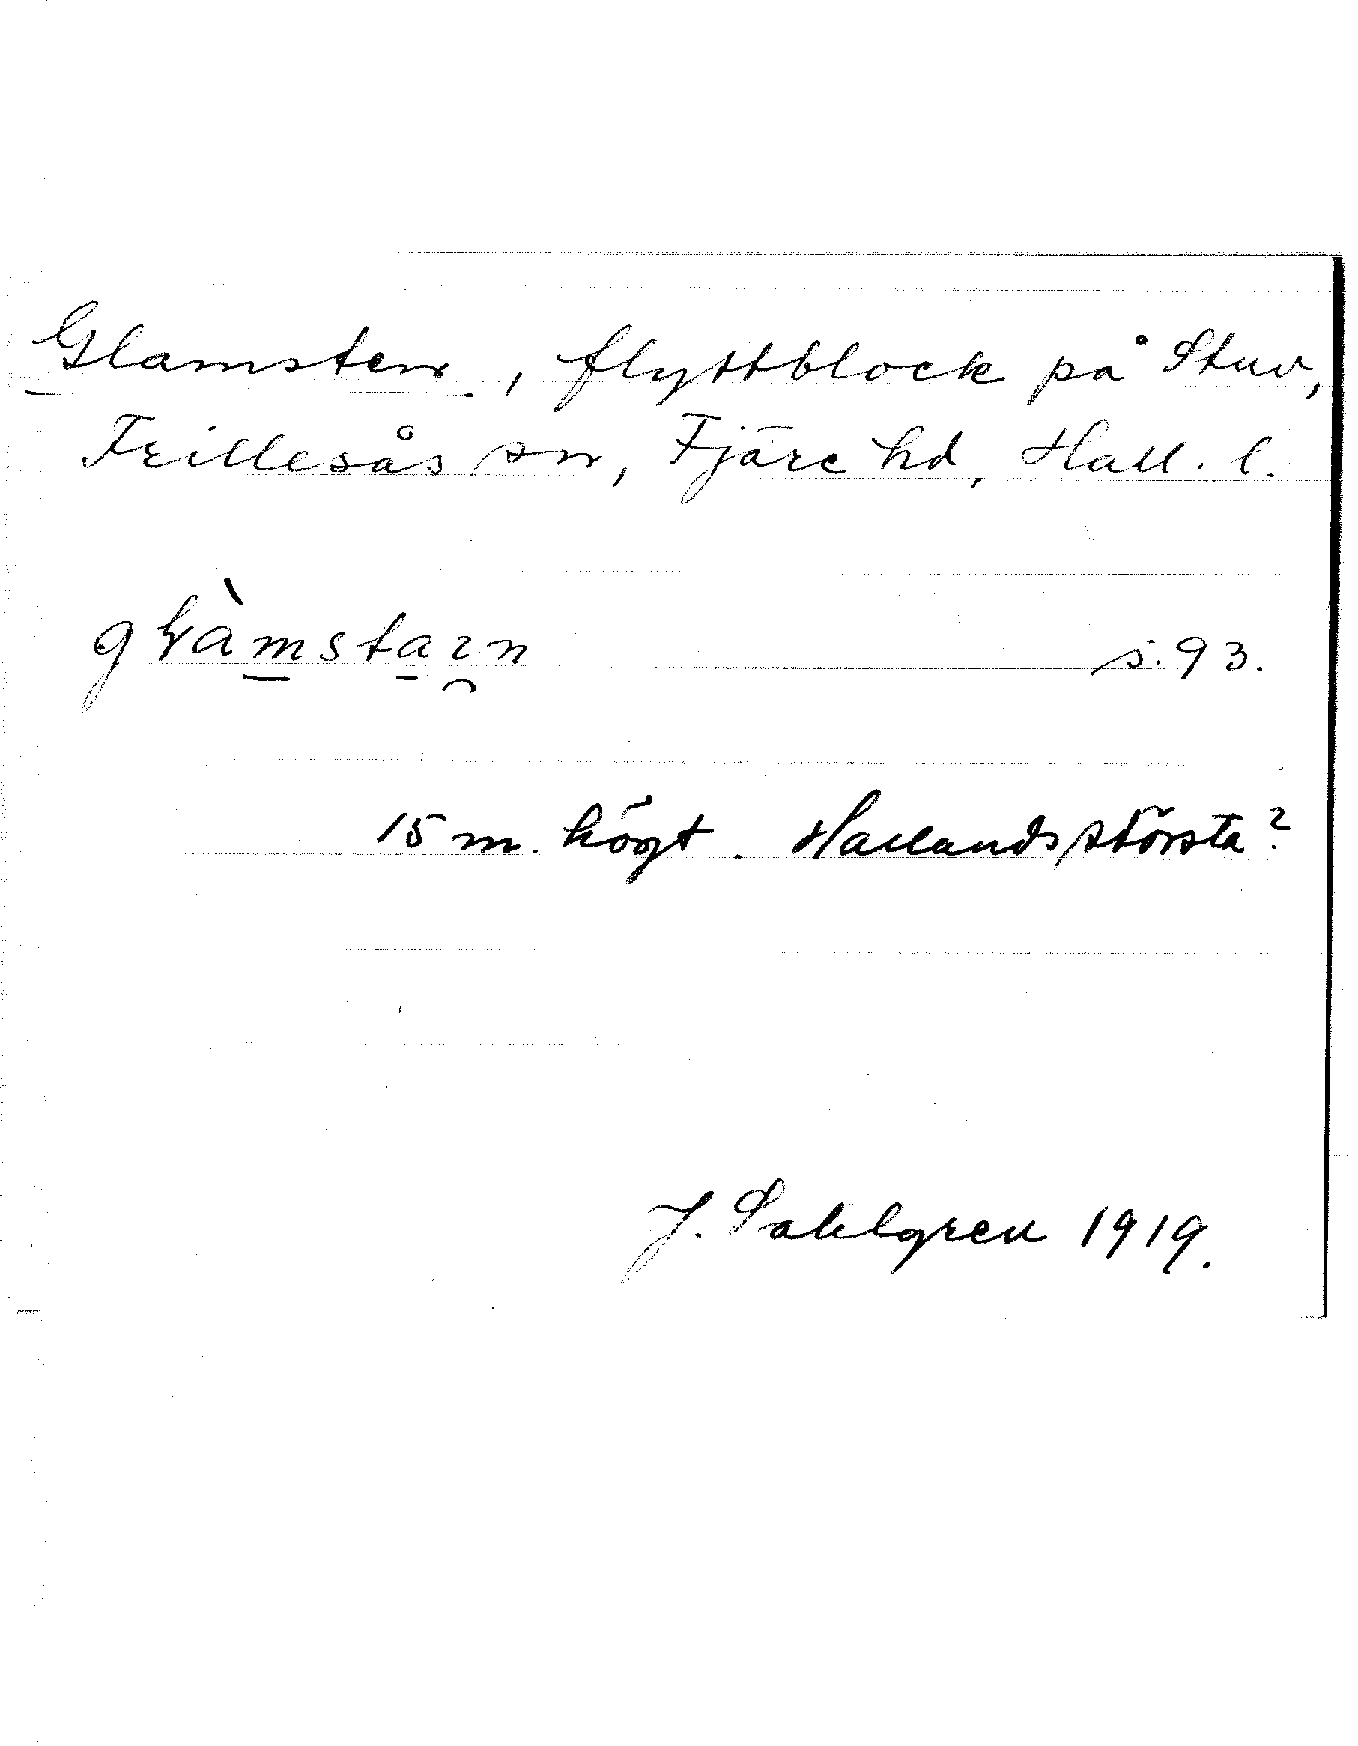 Glamsten, flyttblock på Stuv,
Frillesås sn, Fjäre hd, Hall. l.
glàmstaɩn s. 93.
15 m. högt. Hallands största?
J. Sahlgren 1919.